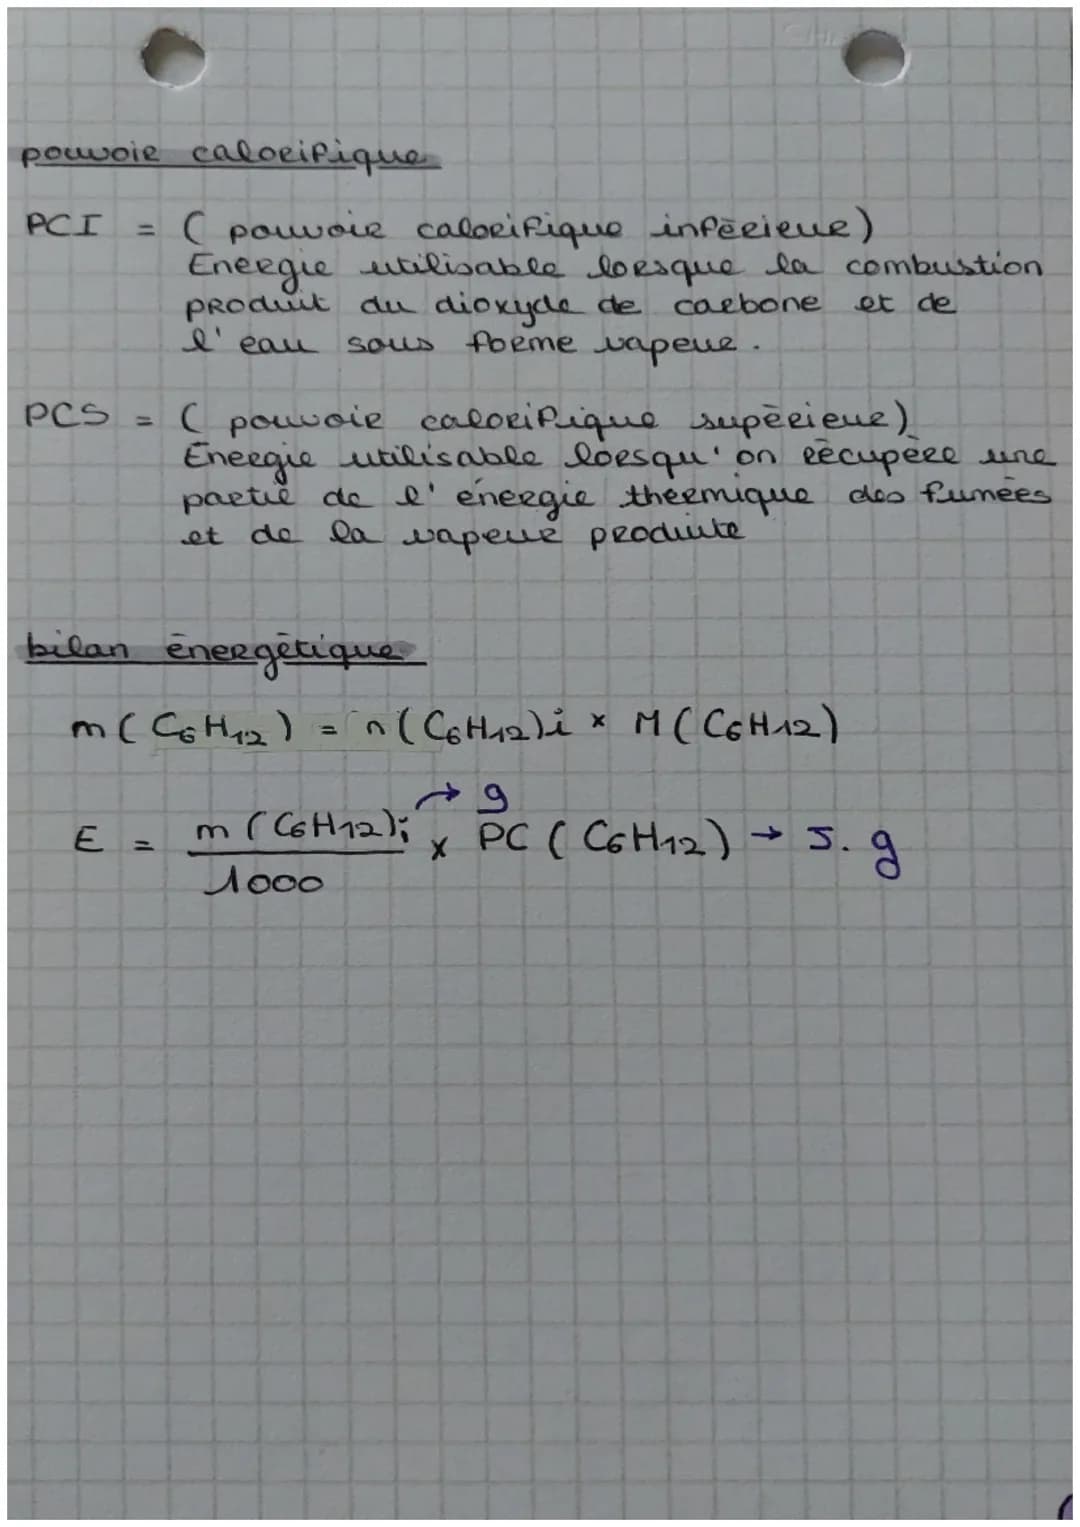 pouvoir calorifique
PCI = ( pouvoir calorifique inférieur)
Énergie utilisable lorsque la combustion
produit du dioxyde de carbone et de
l'eau sous forme vapeur.
PCS = ( pouvoir calorifique supérieur)
Énergie utilisable lorsqu'on récupère une
partie de l'énergie thermique des fumées
et de la vapeur produite
bilan énergétique
m ( C6H12 ) = n ( C6H12 )i × M ( C6H12 )
→ g
E = m ( C6H12 )i / 1000 × PC ( C6H12 ) → J. g